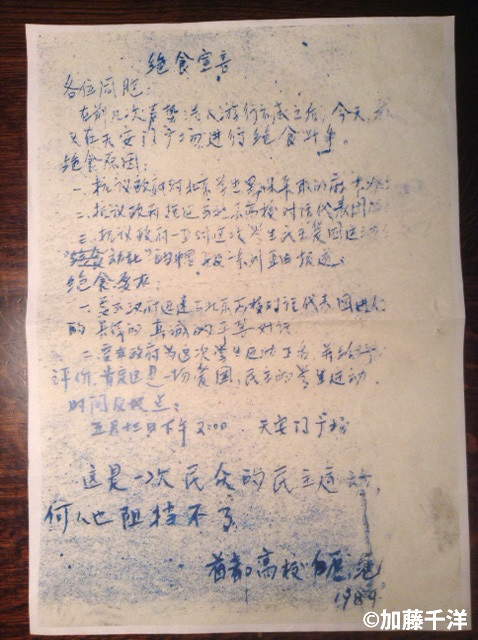 绝食宣言
各位同胞:
在前几次声势浩大游行示威之后,今天,我
又在天安门广场进行绝食斗争。
绝食原因:
一.抗议政府对北京学生罢课采取的麻木
二.抗议政府拖延与北京高校对话代表团
三.抗议政府一直对这次学生民主爱国运动
"动乱"的帽子及一系列歪曲报道。
绝食要求:
一.要求政府迅速与北京高校对话代表团进行
的具体的真诚的平等对话
二.要求政府为这次学生运动正名,并给予
评价,肯定这是一场爱国,民主的学生运动.
时间及地点:
五月十三日下午2:00 天安门广场
这是一次民众的民主运动,
何人也阻挡不了
首都高校
1989.
©加藤千洋